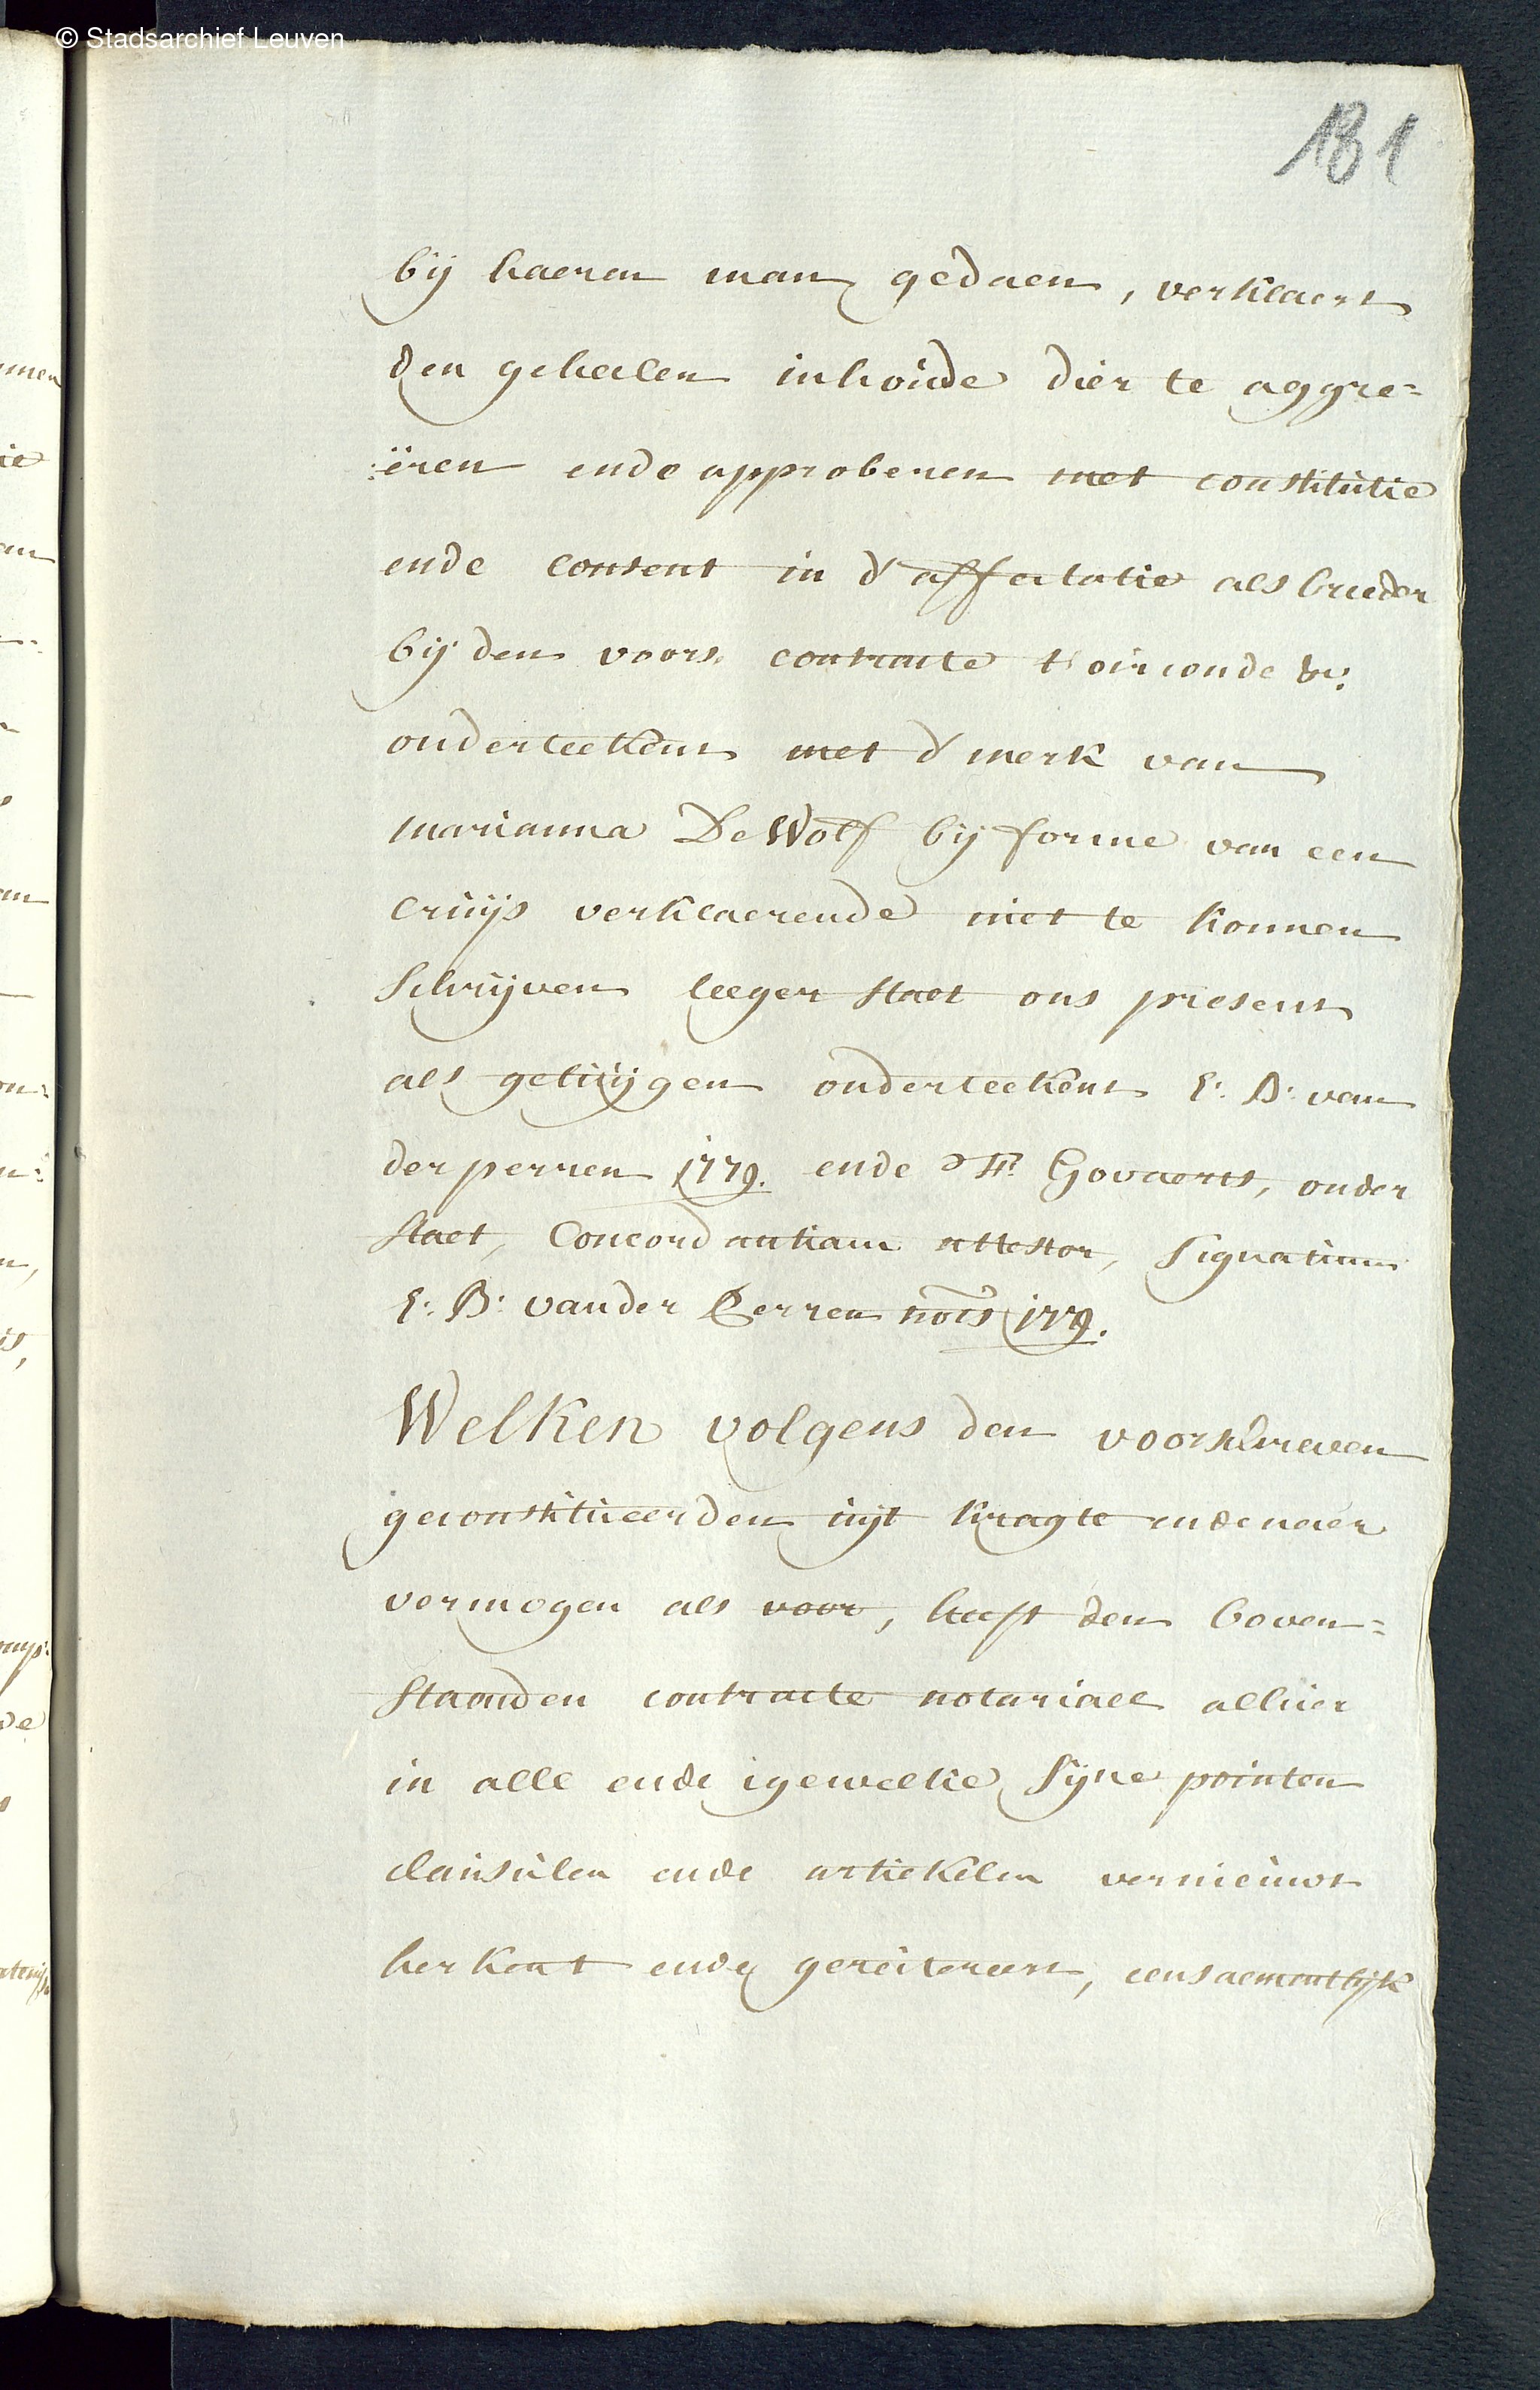 © Stadsarchief Leuven
181
bij haeren man gedaen, verklaert
den geheelen inhoude dier te aggre=
:ëren ende approberen met constitutie
ende consent in d'affectatie als breeder
bij den voors. contracte t'oirconde &c:
onderteekent met d'merk van
marianna De Wolf bij forme van een
cruijs verklaerende niet te konnen
schrijven leeger staet ons present
als getuijgen onderteekent E: B: van
der perren 1779. ende Govaerts, onder
staet, Concordantiam attestor, signatum
E: B: vander Perren nots 1779.
Welken volgens den voorschreven
geconstitueerden uijt kragte ende naer
vermogen als voor, heeft den boven=
staenden contracte notariael alhier
in alle ende igewelke sijne pointen
clausulen ende artiekelen vernieuwt
herkent ende gereitereert, eensaementlijk